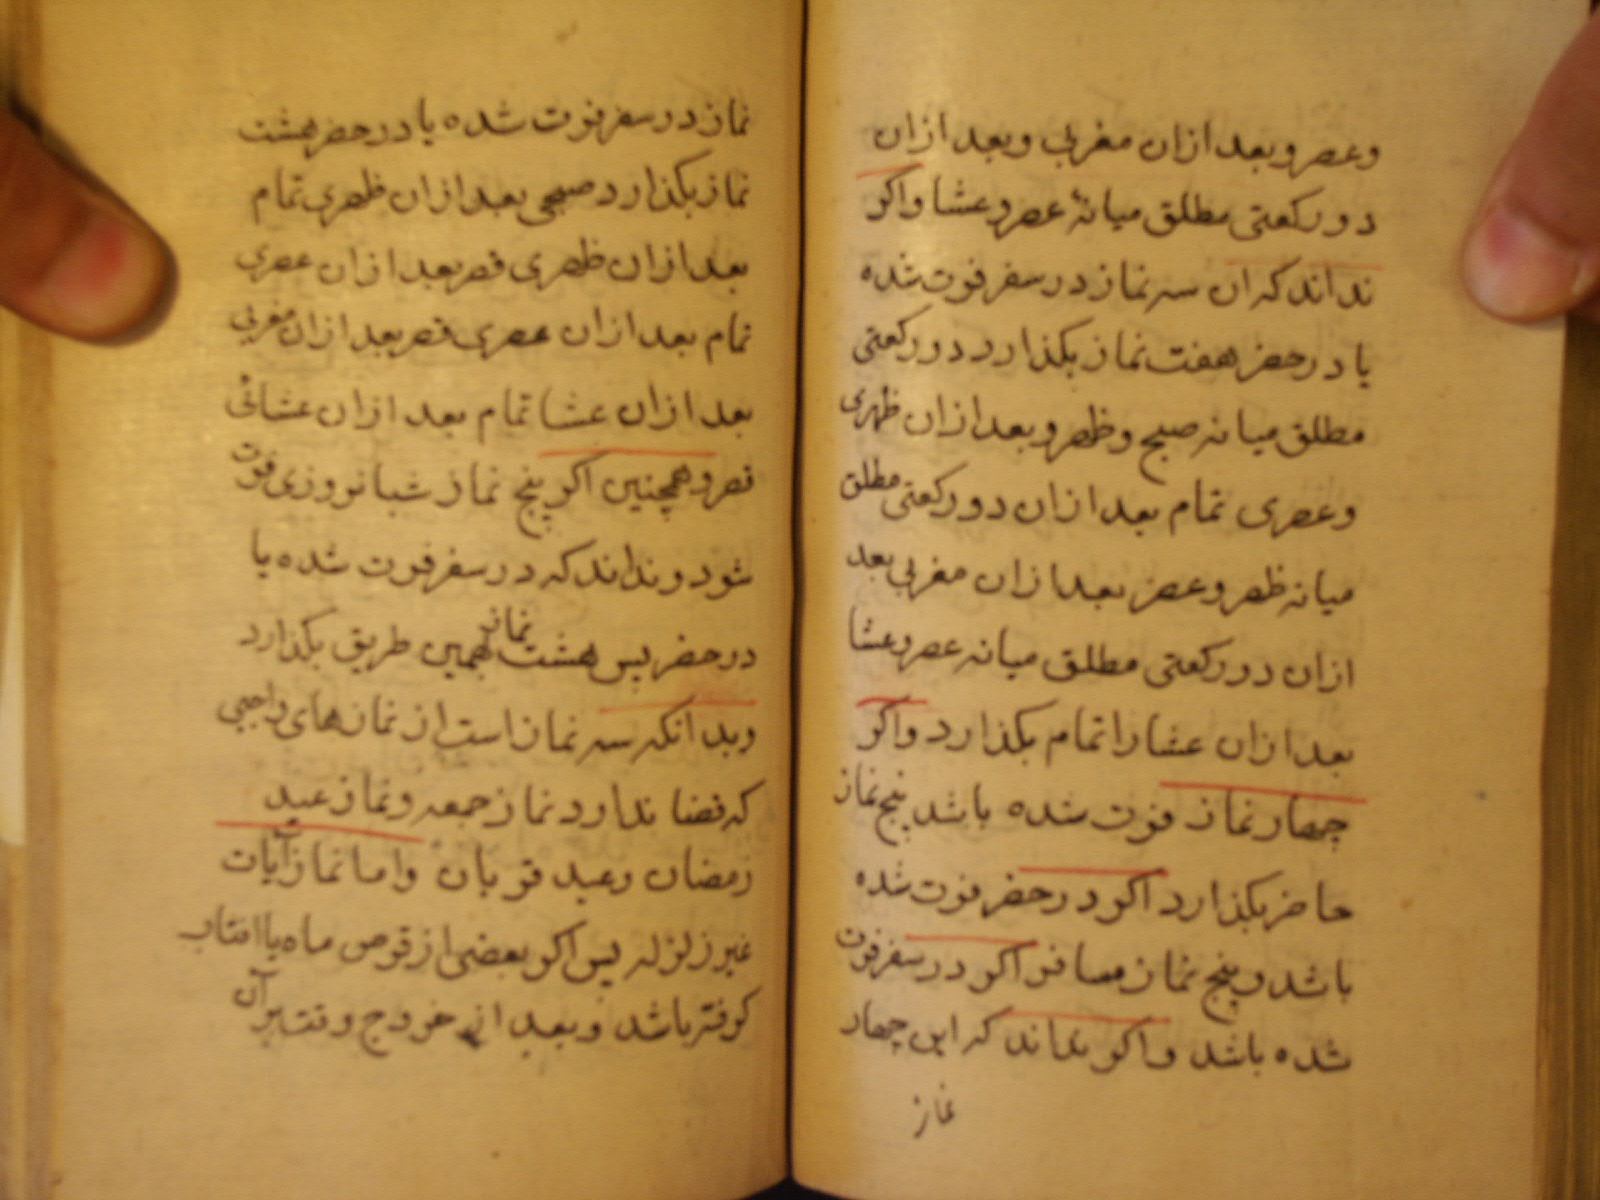 وعصر و بعد ازان مغربی و بعد ازان
دو رکعتی مطلق میانهٔ عصر و عشا و اکر
نداند که ان سه نماز در سفر فوت شده
یا در حضر هفت نماز بکذارد دو رکعتی
مطلق میانه صبح و ظهر و بعد ازان ظهری
و عصری تمام بعد ازان دو رکعتی مطلق
میانه ظهر و عصر بعد ازان مغربی بعد
ازان دو رکعتی مطلق میانه عصر و عشا
بعد ازان عشا را تمام بکذارد و اکر
چهار نماز فوت شده باشد پنج نماز
حاضر بکذارد اکر در حضر فوت شده
باشد و پنج نماز مسافر اکر در سفر فوت
شده باشد و اکر نداند که این چهار
نماز
نماز در سفر فوت شده یا در حضر هشت
نماز بکذارد صبحی بعد ازان ظهری تمام
بعد ازان ظهری قصر بعد ازان عصری
تمام بعد ازان عصری قصر بعد ازان مغربی
بعد ازان عشا تمام بعد ازان عشائی
قصر و همچنین اکر پنج نماز شبانروزی فوت
شود و نداند که در سفر فوت شده یا
در حضر پس هشت نماز بهمین طریق بکذارد
و بدانکه سه نماز است از نمازهای واجبی
که قضا ندارد نماز جمعه و نماز عید
رمضان و عید قربان و اما نماز آیات
غیر زلزله پس اکر بعضی از قرص ماه یا افتاب
کرفته باشد و بعد از خروج وقت بر آن